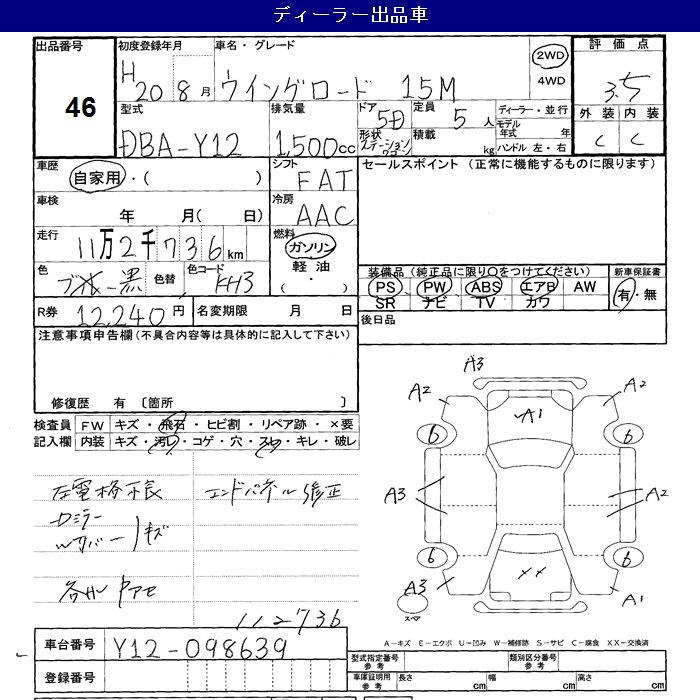 ディーラー出品車
出品番号
46
初度登録年月
H 20 8 月
車名・グレード
ウイングロード 15M
2WD
4WD
評価点
3.5
外装 内装
C C
型式
DBA-Y12
排気量
1,500cc
ドア
5D
形状
ステーションワゴン
定員
5 人
積載
kg
ディーラー・並行
モデル年式 年
ハンドル 左・右
車歴
自家用・( )
シフト
FAT
セールスポイント (正常に機能するものに限ります)
車検
年 月( 日)
冷房
AAC
走行
11万2千736km
燃料
ガソリン
軽油
( ・ )
色
黒
色替
色コード
KH3
装備品 (純正品に限り○をつけてください)
PS PW ABS エアB AW
SR ナビ TV カワ
新車保証書
有・無
R券
12,240円
名変期限 月 日
後日品
注意事項申告欄(不具合内容等は具体的に記入して下さい)
修復歴 有 〔箇所 〕
検査員記入欄
FW キズ・飛石・ヒビ割・リペア跡・×要
内装 キズ・汚レ・コゲ・穴・スレ・キレ・破レ
左電格不良
エンドパネル修正
Dミラー
キズ
112736
A3
A2 A1 A2
6 6
A3 A2
6 6
A3 XX A1
スペア
A－キズ E－エクボ U－凹み W－補修跡 S－サビ C－腐食 XX－交換済
車台番号
Y12-098639
登録番号
型式指定番号 参考
類別区分番号 参考
車庫証明用 参考
長さ cm
幅 cm
高さ cm